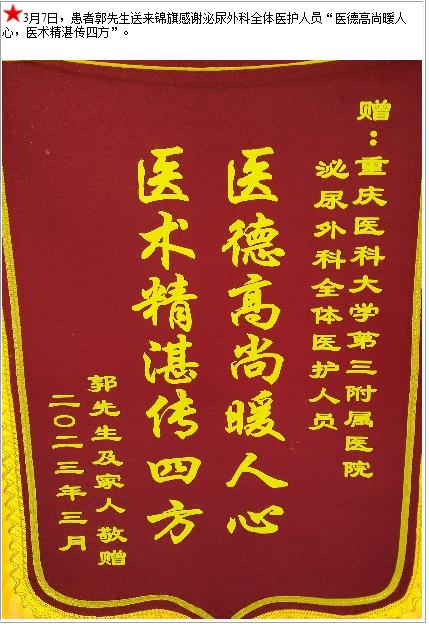 3月7日，患者郭先生送来锦旗感谢泌尿外科全体医护人员“医德高尚暖人
心，医术精湛传四方”。
赠：重庆医科大学第三附属医院
泌尿外科全体医护人员
医德高尚暖人心
医术精湛传四方
郭先生及家人敬赠
二〇二三年三月